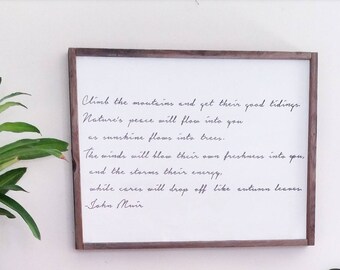 Climb the mountains and get their good tidings.
Nature's peace will flow into you
as sunshine flows into trees.
The winds will blow their own freshness into you,
and the storms their energy,
while cares will drop off like autumn leaves.
-John Muir